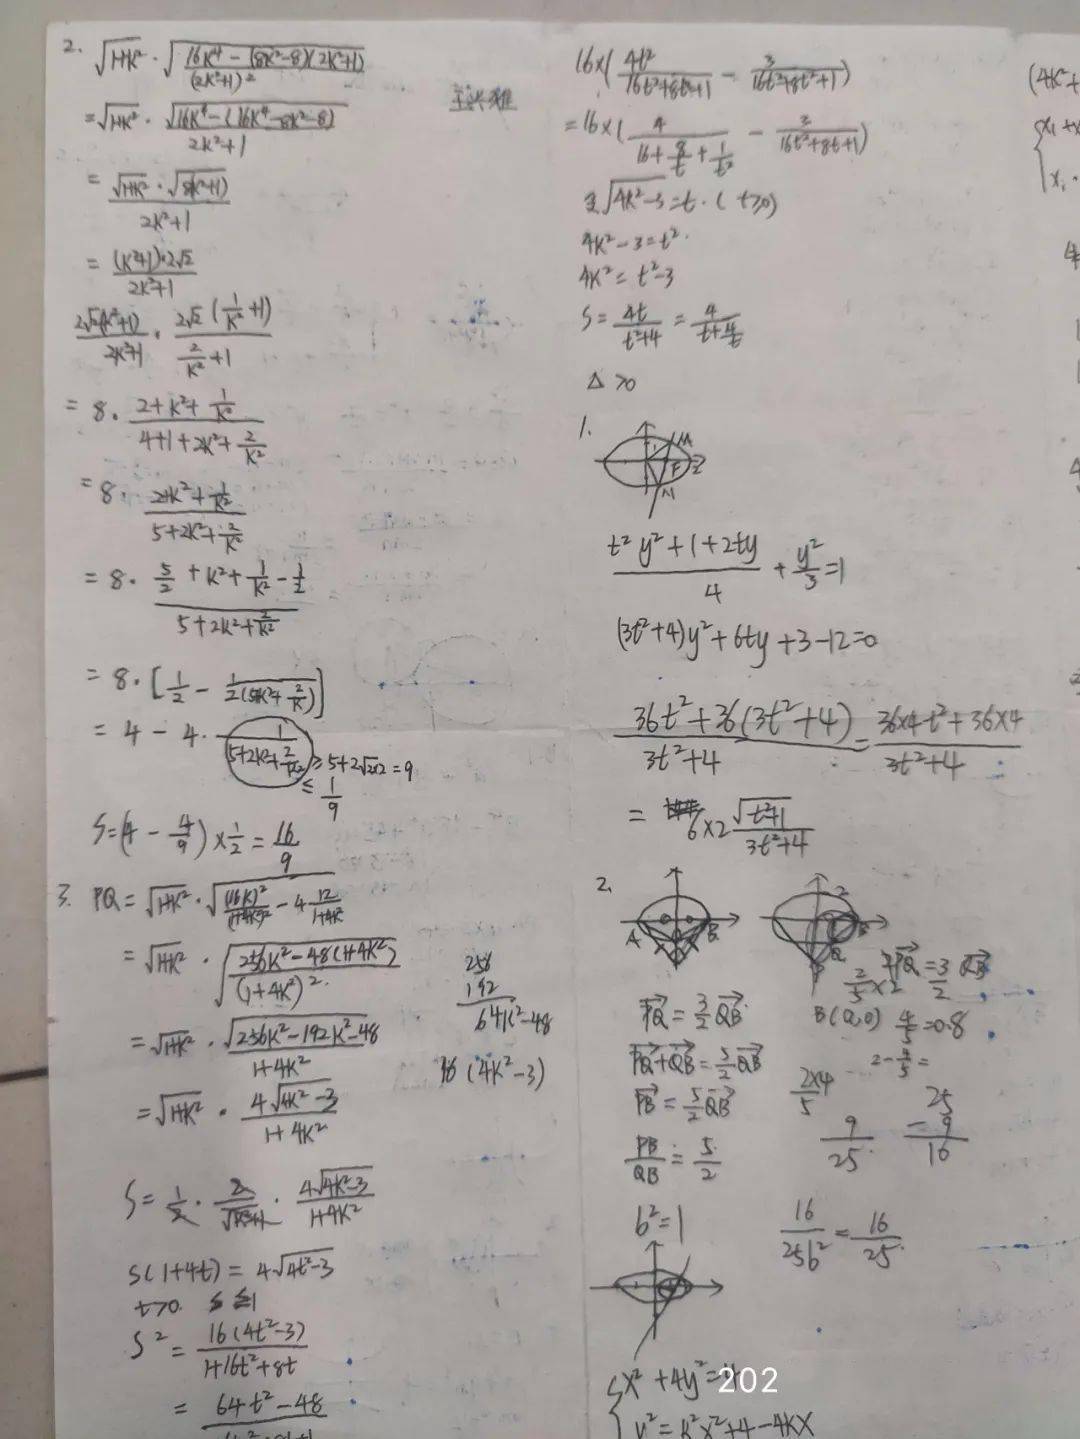 2. √(1+K²) · √((16K⁴-(8K²-8)(2K²+1))/(2K²+1)²)
= √(1+K²) · √(16K⁴-(16K⁴-8K²-8))/(2K²+1)
= √(1+K²) · √(8(K²+1))/(2K²+1)
= (K²+1)·2√2/(2K²+1)
2√2(K²+1)/(2K²+1) · 2√2(1/K²+1)/(2/K²+1)
= 8 · (2+K²+1/K²)/(4+1+2K²+2/K²)
= 8 · (2+K²+1/K²)/(5+2K²+2/K²)
= 8 · (5/2+K²+1/K²-1/2)/(5+2K²+2/K²)
= 8 · [1/2 - 1/2(5+2K²+2/K²)]
= 4 - 4 · 1/(5+2K²+2/K²) ≥ 5+2√2×2 = 9
≤ 1/9
S = (4 - 4/9) × 1/2 = 16/9
3. PQ = √(1+K²) · √((16K)²/(1+4K²)² - 4 12/(1+4K²))
= √(1+K²) · √((256K²-48(1+4K²))/(1+4K²)²)
= √(1+K²) · √(256K²-192K²-48)/(1+4K²)
= √(1+K²) · 4√(4K²-3)/(1+4K²)
S = 1/2 · 2/√(K²+1) · 4√(4K²-3)/(1+4K²)
S(1+4t) = 4√(4t²-3)
t>0 S ≤1
S² = 16(4t²-3)/(1+16t²+8t)
= (64t²-48)
256
192
64K²-48
16(4K²-3)
=16×(4/(16+8/t+1/t²) - 3/(16t²+8t+1))
√(4K²-3)=t.(t≥0)
4K²-3=t².
4K²=t²-3
S=4t/(t²+4)=4/(t+4/t)
Δ>0
1.
M
F
(t²y²+1+2ty)/4 + y²/3=1
(3t²+4)y²+6ty+3-12=0
(36t²+36(3t²+4))/(3t²+4) = (36×4t²+36×4)/(3t²+4)
= 6×2 √(t²+1)/(3t²+4)
2.
A B
PQ=3/2 QB
2/5×2
PQ=3/2 QB
B(2,0) 4/5=0.8
PQ+QB=5/2 QB
2-4/5=
PB=5/2 QB
2×4/5
PB/QB=5/2
9/25
25
-9
16
b²=1
16/25b²=16/25
x²+4y²=4
y²=K²x²+4-4Kx
202
(4K²+
x₁+x
x₁·